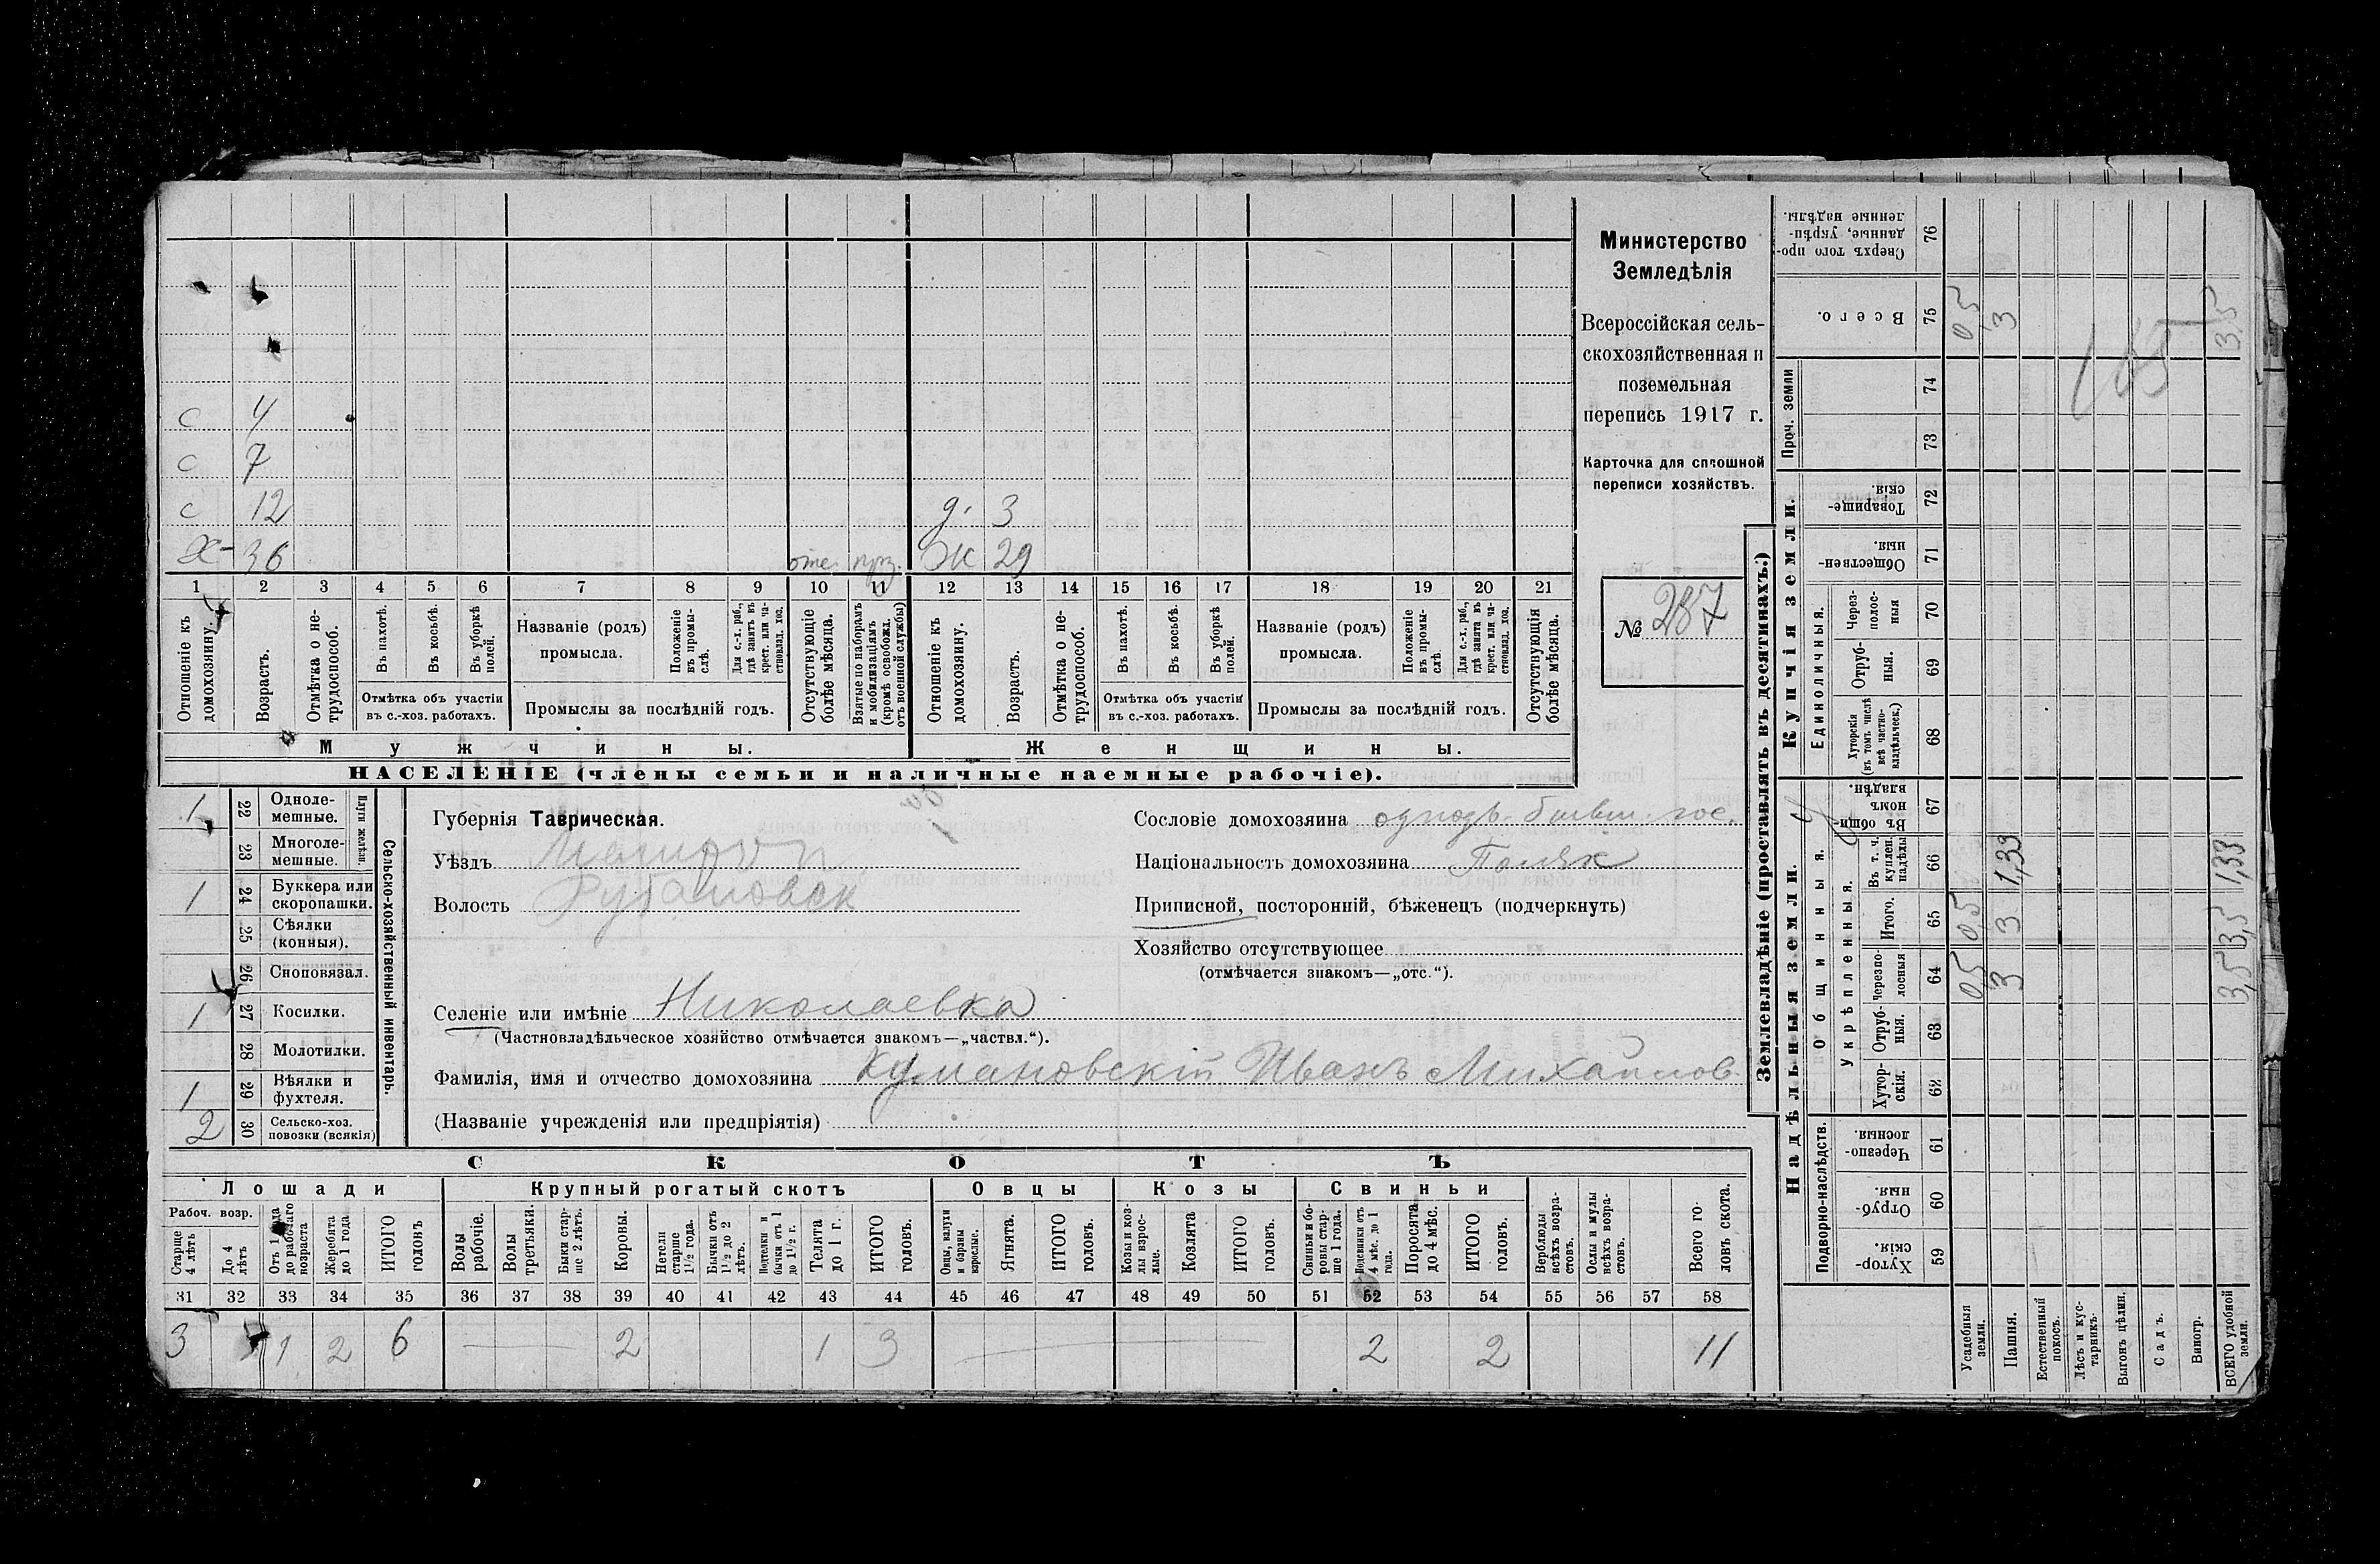 Министерство
Земледѣлія
Всероссійская сель-
скохозяйственная и
поземельная
перепись 1917 г.
Карточка для сплошной
переписи хозяйствъ.
№ 287
с 4
с 7
с 12 д. 3
Х- 36 Ж 29
1 2 3 4 5 6 7 8 9 10 11 12 13 14 15 16 17 18 19 20 21
Отношеніе къ домохозяину.
Возрастъ.
Отмѣтка о не-трудоспособ.
Въ пахотѣ.
Въ косьбѣ.
Въ уборкѣ полей.
Отмѣтка объ участіи
въ с.-хоз. работахъ.
Названіе (родъ)
промысла.
Положеніе въ промы-слѣ.
Для с.-х. раб., гдѣ занятъ въ крест. или ча-ствовлад. хоз.
Промыслы за послѣдній годъ.
Отсутствующіе болѣе мѣсяца.
Взятые по наборамъ и мобилизаціямъ (кромѣ освобожд. отъ военной службы)
Отношеніе къ домохозяину.
Возрастъ.
Отмѣтка о не-трудоспособ.
Въ пахотѣ.
Въ косьбѣ.
Въ уборкѣ полей.
Отмѣтка объ участіи
въ с.-хоз. работахъ.
Названіе (родъ)
промысла.
Положеніе въ промы-слѣ.
Для с.-х. раб., гдѣ занята въ крест. или ча-ствовлад. хоз.
Промыслы за послѣдній годъ.
Отсутствующія болѣе мѣсяца.
Мужчины. Женщины.
НАСЕЛЕНІЕ (члены семьи и наличные наемные рабочіе).
Сельско-хозяйственный инвентарь.
Плуги желѣзн.
1 22 Одноле-мешные.
23 Многоле-мешные.
1 24 Буккера или скоропашки.
25 Сѣялки (конныя).
26 Сноповязал.
1 27 Косилки.
28 Молотилки.
1 29 Вѣялки и фухтеля.
2 30 Сельско-хоз. повозки (всякія)
Губернія Таврическая.
Уѣздъ
Волость Рубановск
Селеніе или имѣніе Николаевка
(Частновладѣльческое хозяйство отмѣчается знакомъ—„частвл.“).
Фамилія, имя и отчество домохозяина Кумановскій Иванъ Михайлов.
(Названіе учрежденія или предпріятія)
Сословіе домохозяина
Національность домохозяина Поляк
Приписной, посторонній, бѣженецъ (подчеркнуть)
Хозяйство отсутствующее
(отмѣчается знакомъ—„отс.“).
СКОТЪ
Лошади Крупный рогатый скотъ Овцы Козы Свиньи
Рабоч. возр.
Старше 4 лѣтъ
До 4 лѣтъ
Отъ 1 года до рабочаго возраста
Жеребята до 1 года
ИТОГО головъ
Волы рабочіе.
Волы третьяки.
Быки стар-ше 2 лѣтъ.
Коровы.
Нетели старше 1½ года.
Бычки отъ 1½ до 2 лѣтъ.
Подтелки и бычки отъ 1 до 1½ г.
Телята до 1 г.
ИТОГО головъ.
Овцы, валухи и бараны взрослые.
Ягнята.
ИТОГО головъ.
Козы и коз-лы взрос-лые.
Козлята
ИТОГО головъ.
Свиньи и бо-ровы стар-ше 1 года.
Подсвинки отъ 4 мѣс. до 1 года.
Поросята до 4 мѣс.
ИТОГО головъ.
Верблюды всѣхъ возра-стовъ.
Ослы и мулы всѣхъ возра-стовъ.
Всего го-ловъ скота.
31 32 33 34 35 36 37 38 39 40 41 42 43 44 45 46 47 48 49 50 51 52 53 54 55 56 57 58
3 1 2 6 — 2 1 3 — — 2 2 11
Землевладѣніе (проставлять въ десятинахъ.)
Надѣльныя земли. Купчія земли. Проч. земли
Подворно-наслѣдств.
Общинныя.
Укрѣпленныя.
Единоличныя.
59 Хутор-скія.
60 Отруб-ныя.
61 Черезпо-лосныя.
62 Хутор-скія.
63 Отруб-ныя.
64 Черезпо-лосныя
65 Итого.
66 Въ т. ч. куплен. надѣлы
67 Въ общи-номъ владѣн.
68 Хуторскія (въ томъ числѣ всѣ частно-владѣльческ.)
69 Отруб-ныя.
70 Через-полос-ныя
71 Обществен-ныя.
72 Товарище-скія.
73
74
75 Всего.
76 Сверхъ того про-данные, укрѣп-ленные надѣлы.
Усадебныя земли. 0,5 0,5 0,5
Пашня. 3 3 1,33 3
Естественный покосъ.
Лѣсъ и кус-тарникъ.
Выгонъ цѣлин.
Садъ.
Виногр.
ВСЕГО удобной земли. 3,5 3,5 1,33 3,5
165